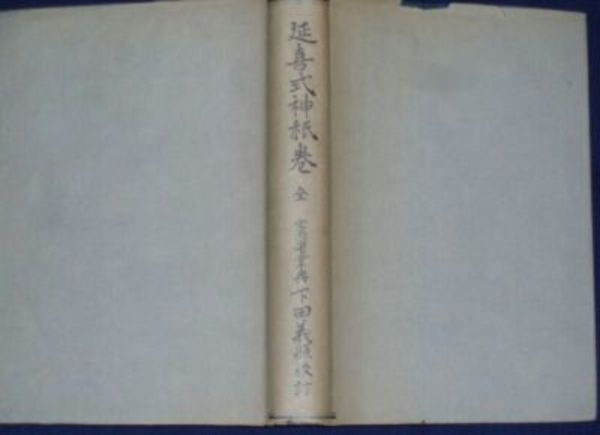 延喜式神祇巻 全
下田義照校訂